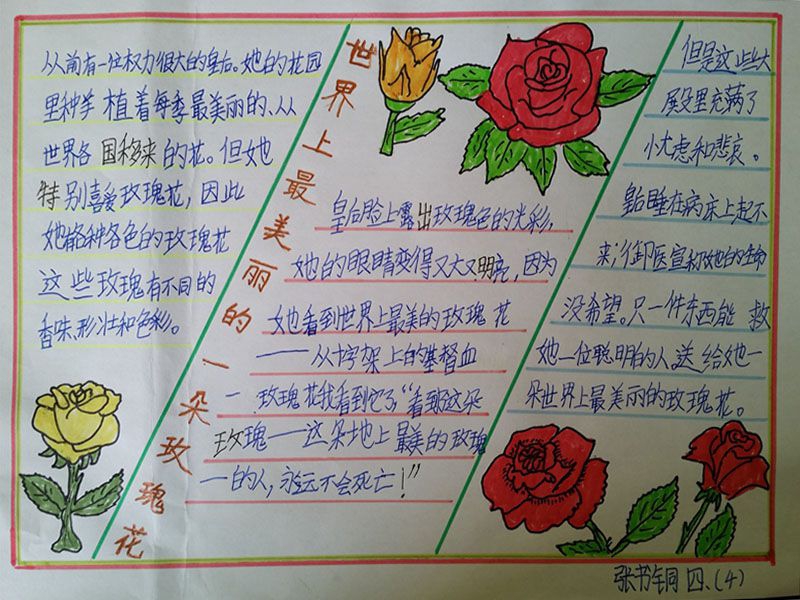 世界上最美丽的一朵玫瑰花
从前有一位权力很大的皇后。她的花园
里种羊植着每季最美丽的、从
世界各国移来的花。但她
特别喜爱玫瑰花，因此
她各种各色的玫瑰花
这些玫瑰有不同的
香味、形壮和色彩。
皇后脸上露出玫瑰色的光彩，
她的眼睛变得又大又明亮，因为
她看到世界上最美的玫瑰花
——从十字架上的基督血
一玫瑰花我看到它了“看到这朵
玫瑰——这朵地上最美的玫瑰
一的人，永远不会死亡！”
但是这些大
屋里充满了
忧虑和悲哀。
皇后睡在病床上起不
来，御医宣称她的生命
没希望。只一件东西能救
她一位聪明的人送给她一
朵世界上最美丽的玫瑰花。
张书铜 四.(4)